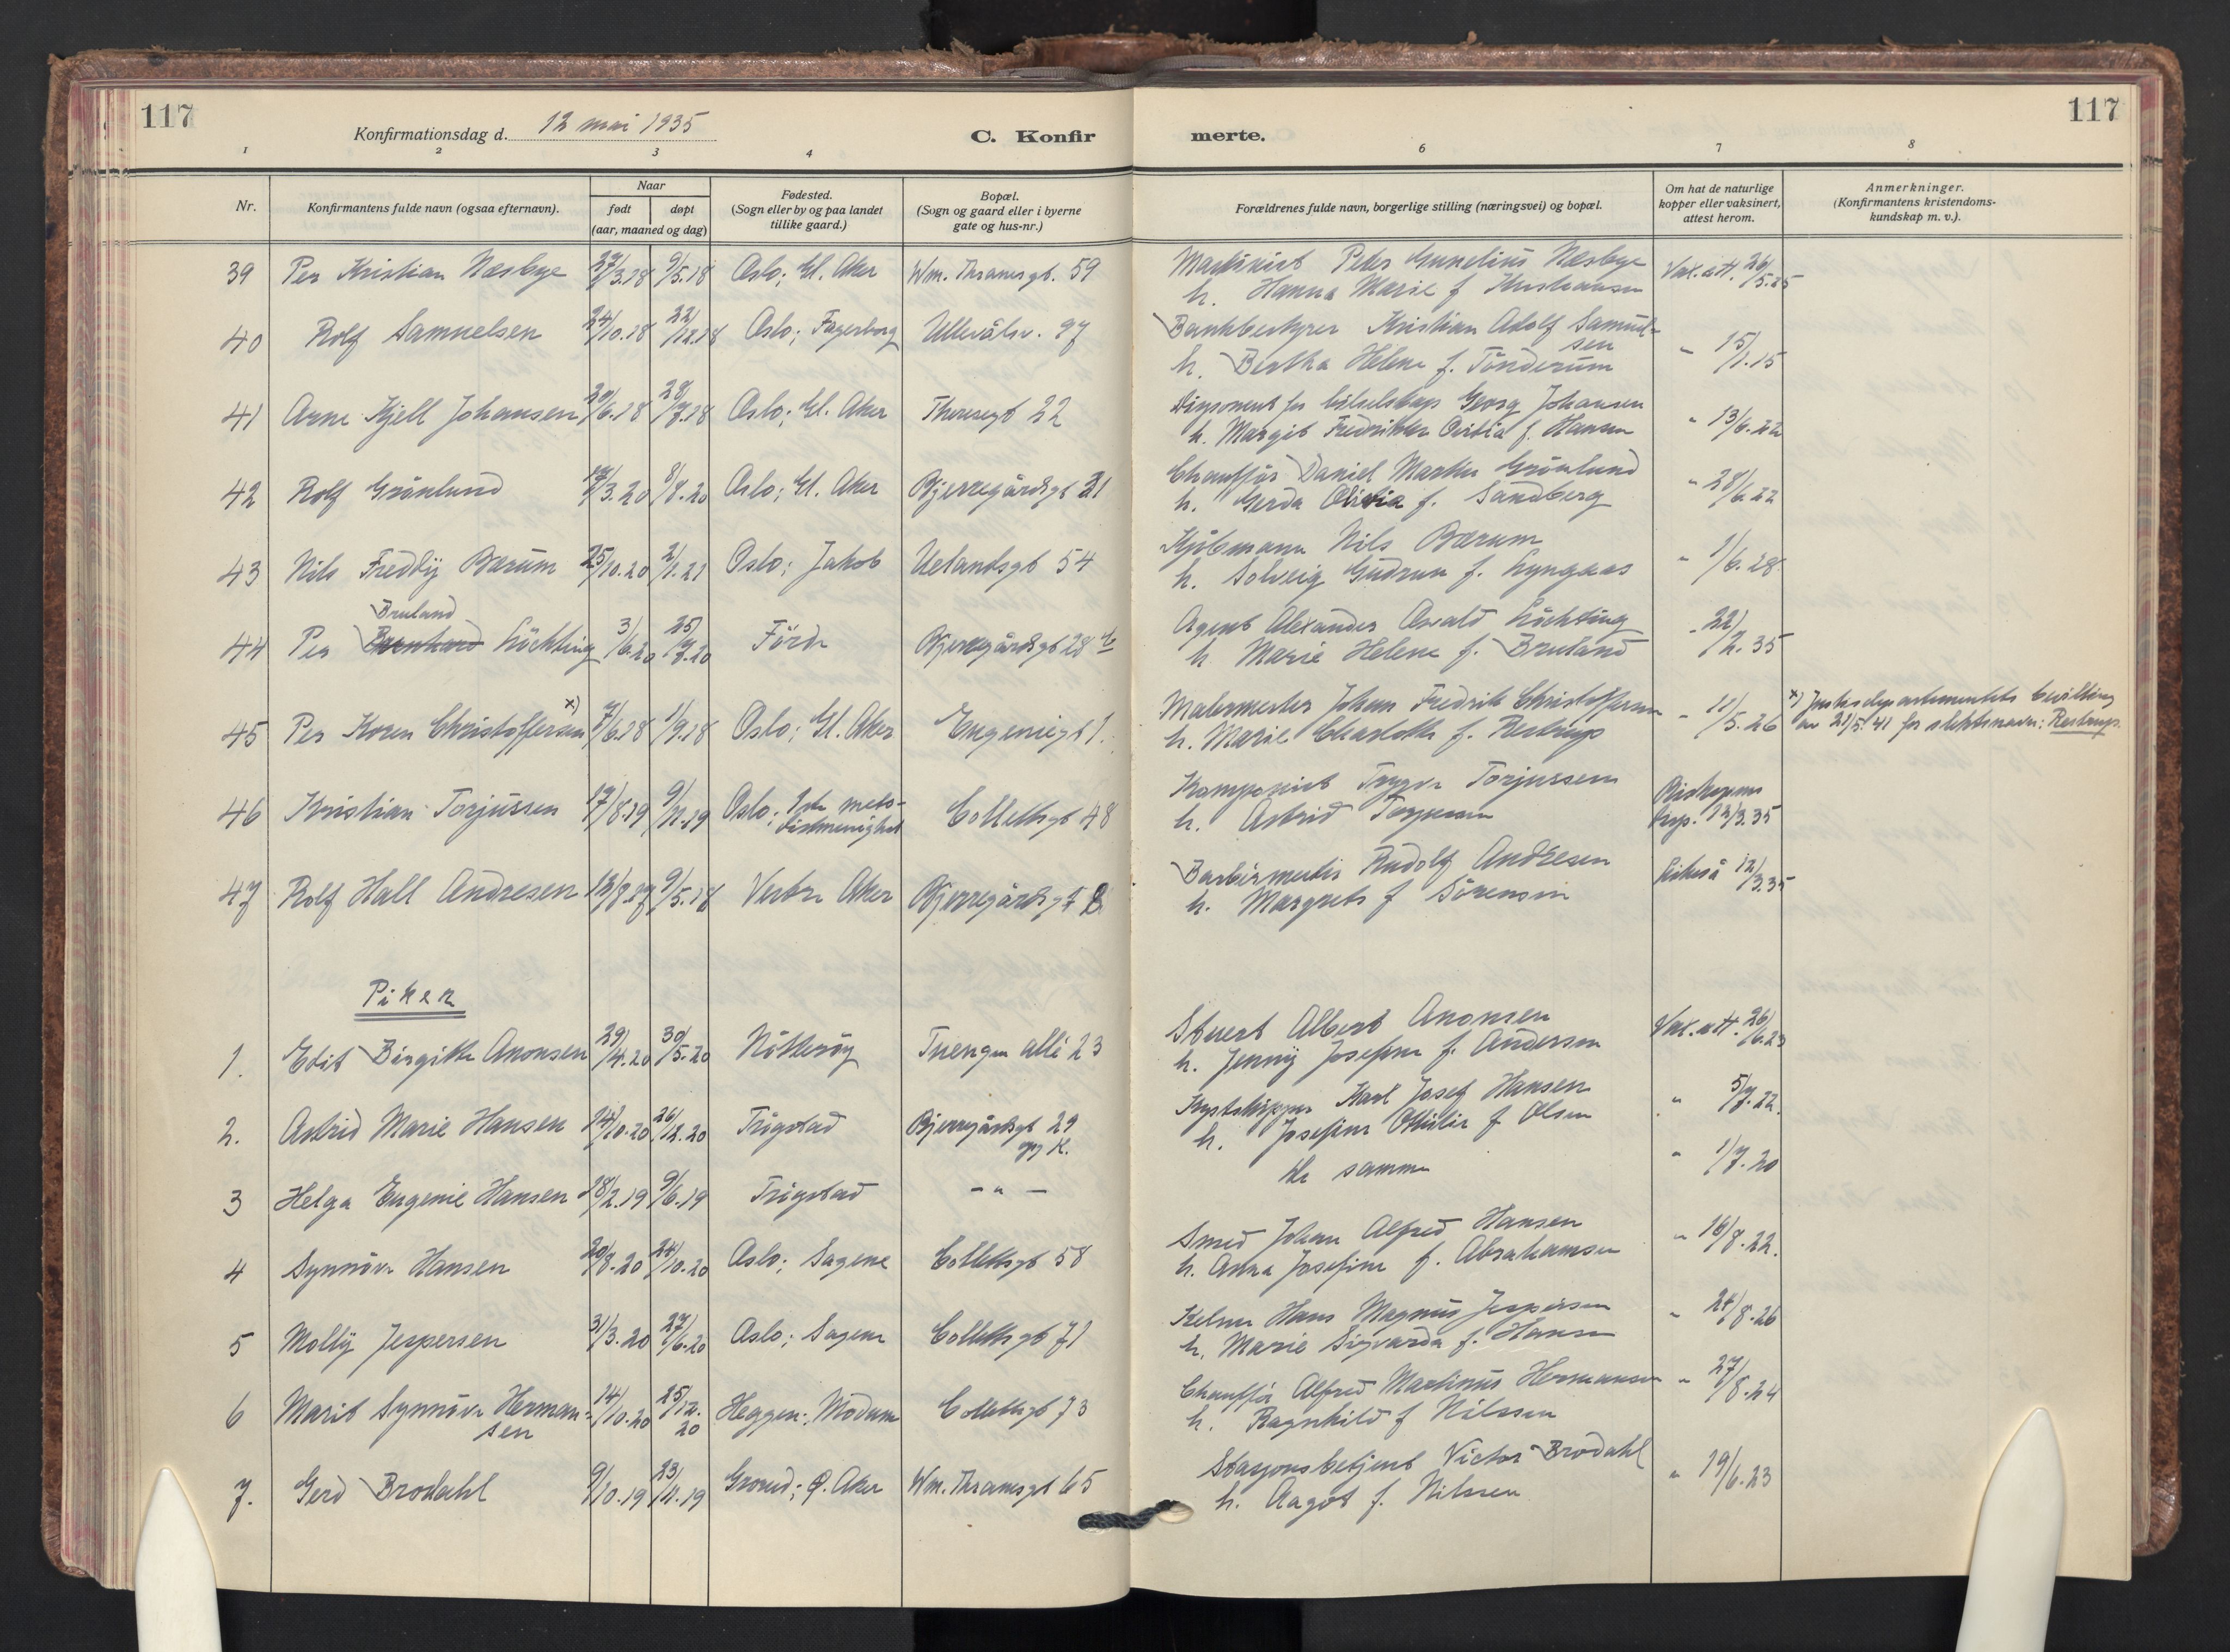 117
Konfirmationsdag d. 12 mai 1935
C. Konfir
1 2 3 4
Nr.
Konfirmantens fulde navn (ogsaa efternavn).
Naar
født døpt
(aar, maaned og dag)
Fødested.
(Sogn eller by og paa landet
tillike gaard.)
Bopæl.
(Sogn og gaard eller i byerne
gate og hus-nr.)
39 Per Kristian Næsbye 27/3.18 9/5.18 Oslo; Gl. Aker Wm. Thranesgt. 59
40 Rolf Samuelsen 24/10.18 22/12.18 Oslo; Fagerborg Ullevålsv. 97
41 Arne Kjell Johansen 20/6.18 28/7.18 Oslo; Gl. Aker Theresegt 22
42 Rolf Grönlund 3.20 8/8.20 Oslo; Gl. Aker Bjerregårdsgt 21
43 Nils Freddy Bærum 25/10.20 2/1.21 Oslo; Jakob Uelandsgt 54
Bruland
44 Per Bernhard Löchting 3/6.20 25/7.20 Förde Bjerregårdsgt 28 b
45 Per Koren Christoffersen x) 7/6.18 1/9.18 Oslo; Gl. Aker Eugeniegt 1.
46 Kristian Torjussen 17/8.19 9/11.19 Oslo; 1ste meto-
distmenighet Collettsgt 48
47 Rolf Hall Andresen 12/8.17 9/5.18 Vestre Aker Bjerregårdsgt
Piker
1. Edit Birgitte Anonsen 29/4.20 30/5.20 Nötteröy Tuengen allé 23
2. Astrid Marie Hansen 14/10.20 26/12.20 Trögstad Bjerregårdsgt 29
opg K.
3 Helga Eugenie Hansen 18/2.19 9/6.19 Trögstad — „ —
4 Synnöve Hansen 20/8.20 24/10.20 Oslo; Sagene Collettsgt 58
5 Molly Jespersen 31/3.20 27/6.20 Oslo; Sagene Collettsgt 71
6 Marit Synnöve Herman-
sen 14/10.20 25/12.20 Heggen; Modum Collettsgt 73
7. Gerd Brodahl 9/10.19 23/11.19 Grorud; Ø. Aker Wm. Thranesgt 65
merte.
117
6 7 8
Forældrenes fulde navn, borgerlige stilling (næringsvei) og bopæl.
Om hat de naturlige
kopper eller vaksinert,
attest herom.
Anmerkninger.
(Konfirmantens kristendoms-
kundskap m. v.).
Maskinist Peder Næsbye Vak.att. 26/5.25
h. Hanna Marie f Kristiansen
Bankbestyrer Kristian Adolf Samuel-
sen
h. Bertha Helene f. Tönderum „ 15/1.15
Disponent for bilselskap Georg Johansen
h. Margit Fredrikke f. Hansen „ 13/6.22
Chaufför Daniel Martin Grönlund
h. Gerda Olivia f. Sandberg „ 28/6.22
Kjöbmann Nils Bærum
h. Solveig Gudrun f. Lyngaas „ 1/6.28
Agent Alexander Osvald Löchting
h Marie Helene f. Bruland „ 22/2.35
Malermester Johan Fredrik Christoffersen
h. Marie Charlotte f. Restrup „ 11/5.26
x) Justisdepartementets bevilling
av 21/5.41 for slektsnavn: Restrup.
Komponist Trygve Torjussen
h. Astrid Torjussen Biskopens
disp. 12/3.35
Barbermester Rudolf Andresen
h. Margrete f Sörensen Likeså 12/3.35
Stuert Albert Anonsen Vak.att. 26/6.23
h. Jenny Josefine f. Andersen
Kystskipper Karl Josef Hansen „ 5/7.22.
h. Josefine Othilie f Olsen
de samme „ 1/7.20
Smed Johan Alfred Hansen „ 16/8.22.
h. Anna Josefine f. Abrahamsen
Kelner Hans Magnus Jespersen „ 24/8.26
h. Marie Sigvarda f. Hansen
Chaufför Alfred Martinus Hermansen „ 27/8.24
h. Ragnhild f Nilssen
Stasjonsbetjent Victor Brodahl „ 19/6.23
h. Aagot f. Nilssen